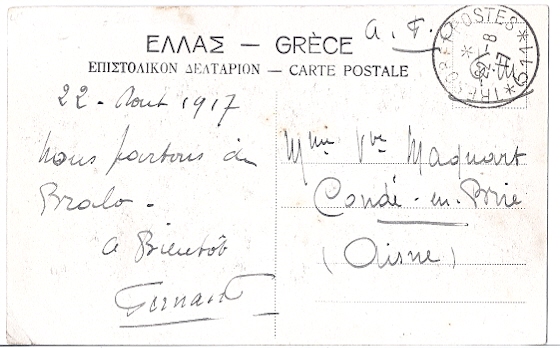 A. F.
ΕΛΛΑΣ — GRÈCE
ΕΠΙΣΤΟΛΙΚΟΝ ΔΕΛΤΑΡΙΟΝ — CARTE POSTALE
TRESOR ET POSTES * 511 *
22 - Aout 1917
Nous partons de
Bralo -
A Bientôt
Fernand
Mme Vve Maquart
Condé-en-Brie
(Aisne)